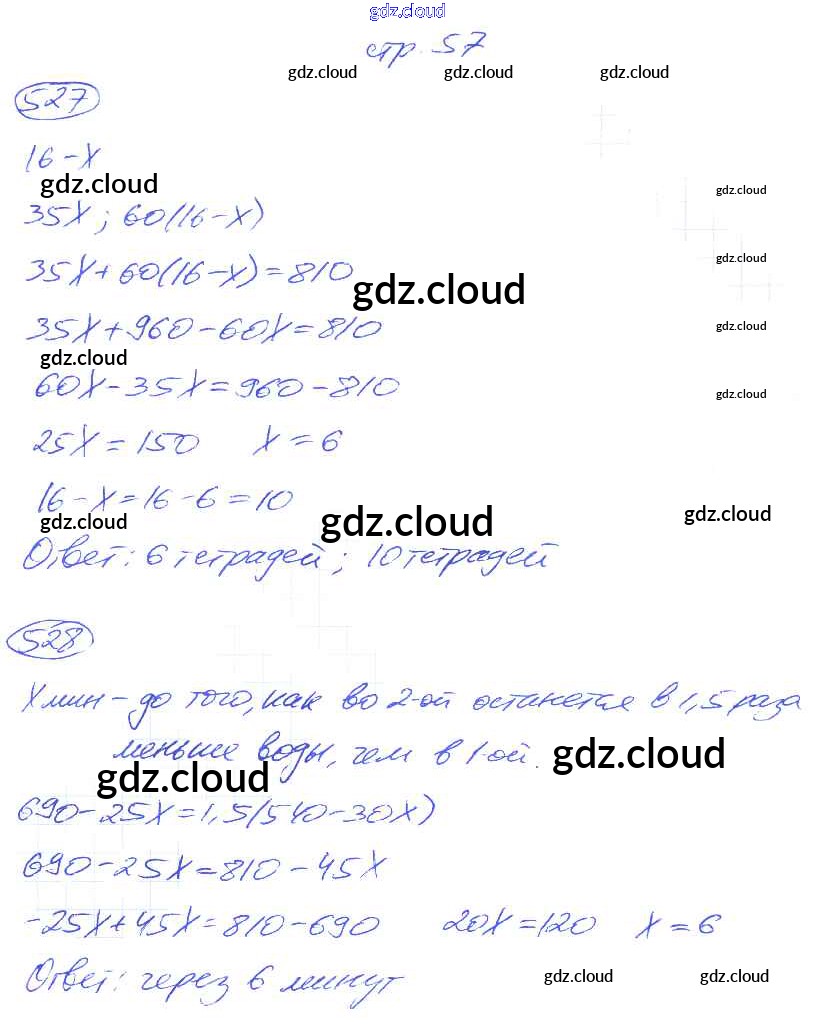 gdz.cloud
стр. 57
gdz.cloud gdz.cloud gdz.cloud
527
16-x
gdz.cloud gdz.cloud
35x; 60(16-x)
gdz.cloud
35x+60(16-x)=810
gdz.cloud
35x+960-60x=810
gdz.cloud
gdz.cloud
60x-35x=960-810
gdz.cloud
25x=150 x=6
16-x=16-6=10
gdz.cloud gdz.cloud gdz.cloud
Ответ: 6 тетрадей; 10 тетрадей
528
x мин - до того, как во 2-ой останется в 1,5 раза
меньше воды, чем в 1-ой.
gdz.cloud
gdz.cloud
690-25x=1,5(540-30x)
690-25x=810-45x
-25x+45x=810-690 20x=120 x=6
Ответ: через 6 минут
gdz.cloud gdz.cloud